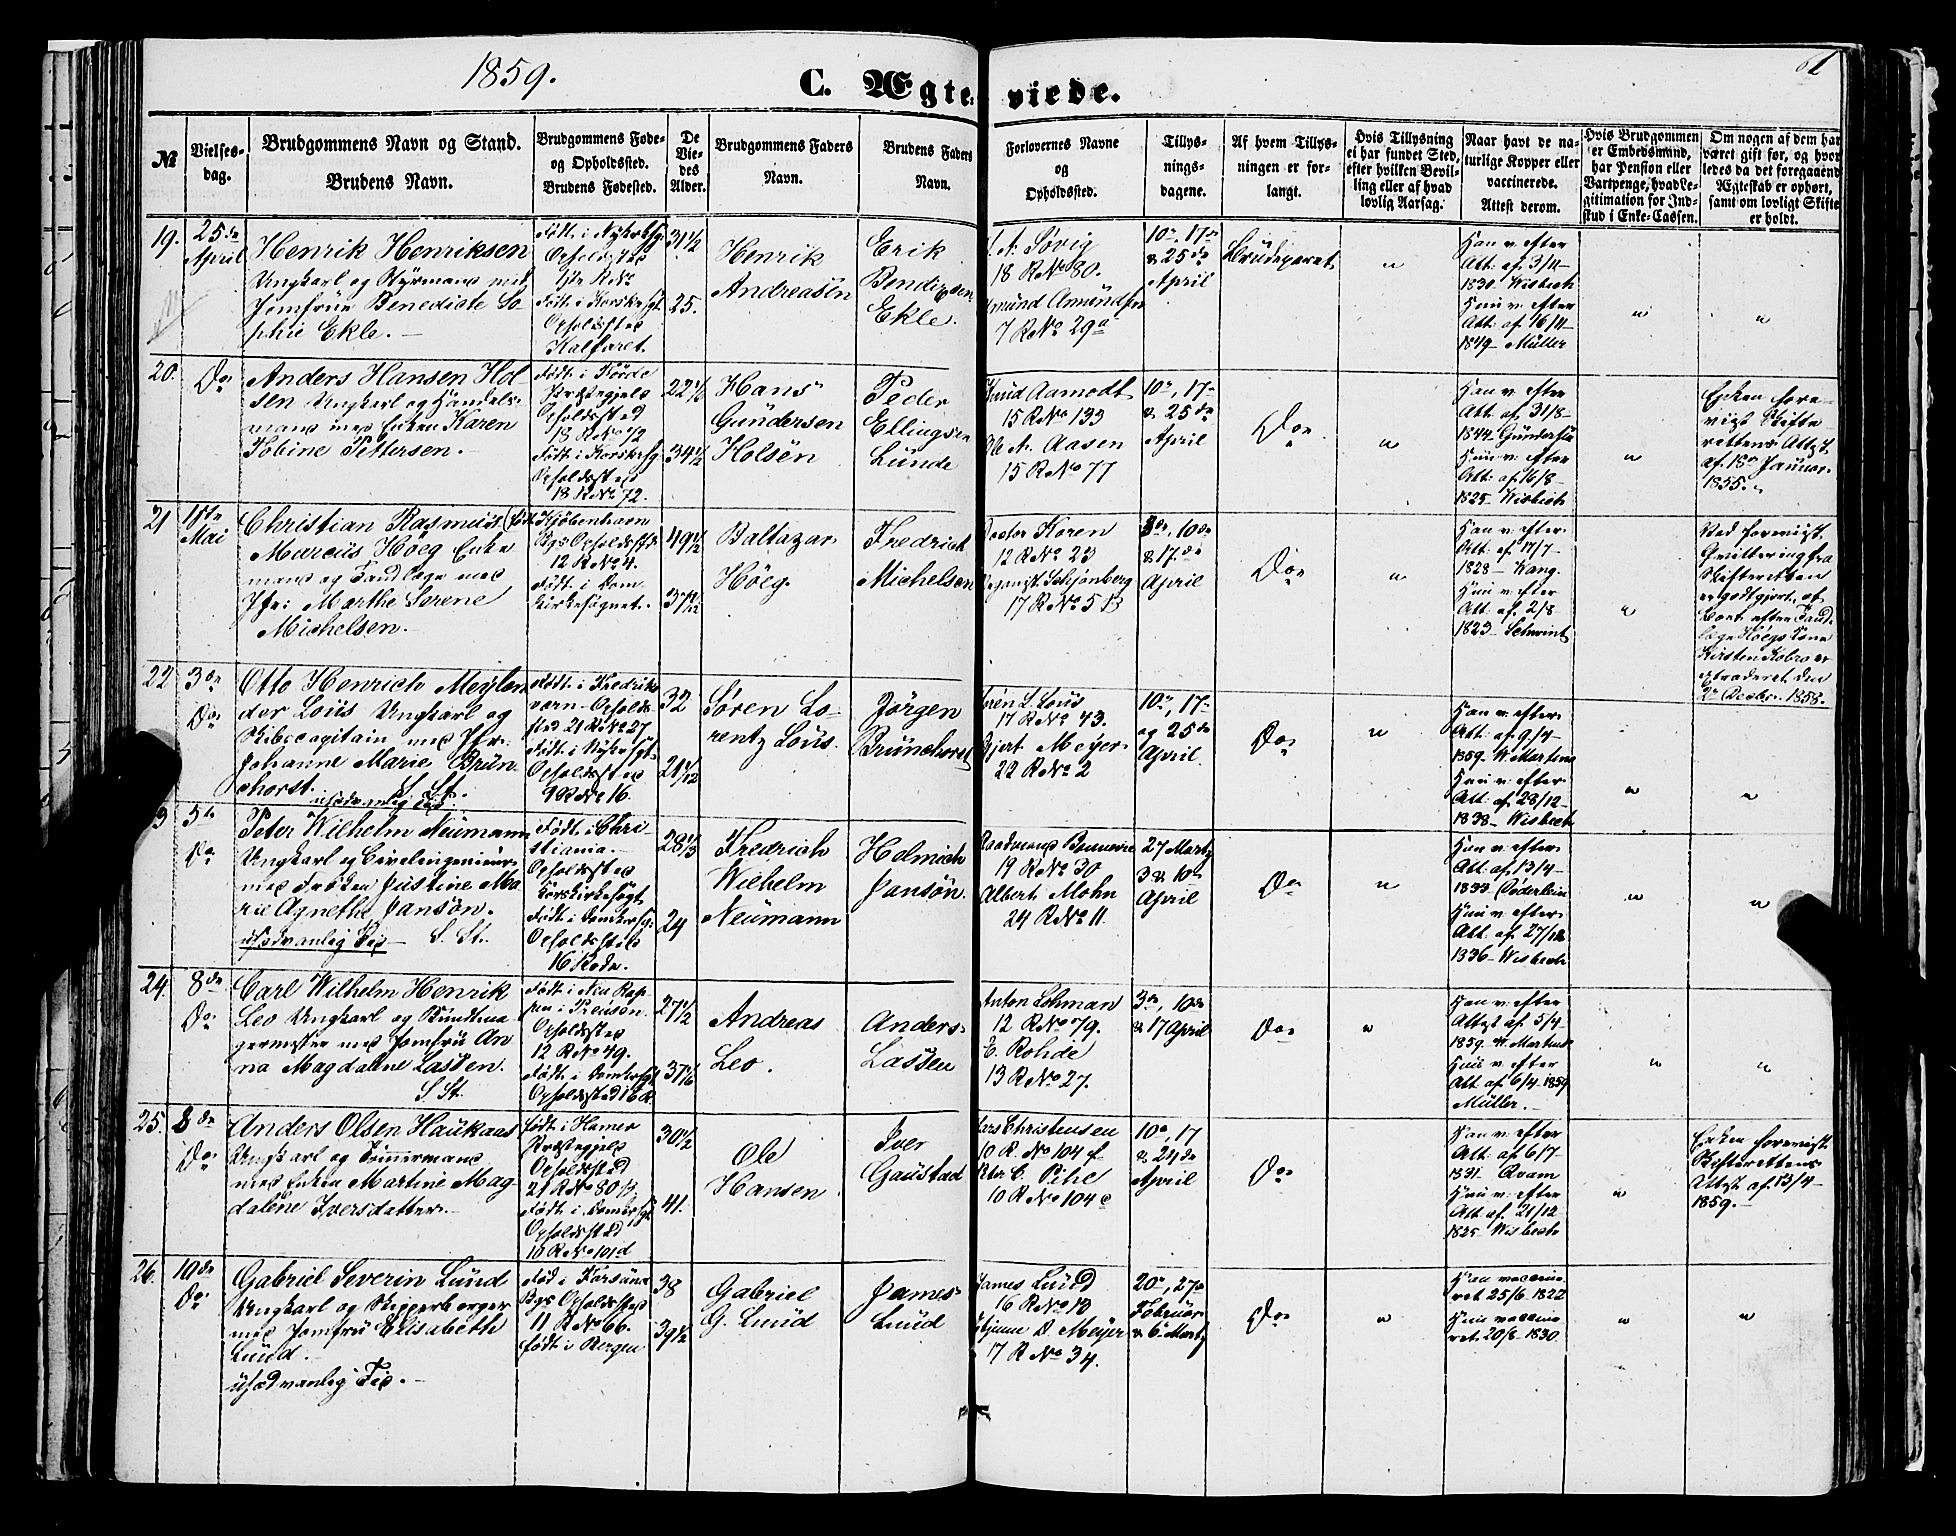 1859.
C. Ægteviede.
61
№
Vielses-
dag.
Brudgommens Navn og Stand.
Brudens Navn.
Brudgommens Føde-
og Opholdssted.
Brudens Fødested.
De
Vie-
des
Alder.
Brudgommens Faders
Navn.
Brudens Faders
Navn.
Forlovernes Navne
og
Opholdssted.
Tillys-
nings-
dagene.
Af hvem Tillys-
ningen er for-
langt.
Hvis Tillysning
ei har fundet Sted,
efter hvilken Bevil-
ling eller af hvad
lovlig Aarsag.
Naar havt de na-
turlige Kopper eller
vaccinerede.
Attest derom.
Hvis Brudgommen
er Embedsmand,
har Pension eller
Vartpenge, hvad Le-
gitimation for Ind-
skud i Enke-Cassen.
Om nogen af dem har
været gift før, og hvor-
ledes da det foregaaende
Ægteskab er ophørt,
samt om lovligt Skifte
er holdt.
19.
25de
April
Henrik Henriksen
Ungkarl og Styrmand med
Jomfrue Benedicte So-
phie Ekle.
Født i Nykirkesg.
Opholdssted
Født i Korskirkesg.
Opholdssted
Kalfaret.
31 1/2
25.
Henrik
Andreasen
Erik
Bendixsen
Ekle.
A. Søvig
18 R No 80.
Amundsen
7 R No 29a
10de, 17de
& 25de
April
Brudeparret
"
Han v. efter
Att: af 3/11
1830 Wisbech
Hun v. efter
Att: af 16/11
1849 Müller
"
"
20.
Do
Anders Hansen Hol-
sen Ungkarl og Handels-
mand med Enken Karen
Tobine Pettersen.
Født i Førde
Præstegjeld
Opholdssted
18 R No 72
Født i Korskirkesg.
Opholdssted
18 R No 72.
22 1/6
34 1/2
Hans
Gundersen
Holsen
Peder
Ellingsen
Lunde
Knud Aamodt
15 R No 133
Ole A. Aasen
15 R No 77
10de, 17de
& 25de
April
Do
"
Han v. efter
Att: af 31/8
1844 Gundersen
Hun v. efter
Att: af 16/8
1825 Wisbech
"
Enken fore-
vist Skifte-
rettens Attest
af 18de Januar
1855.
21
1ste
Mai
Christian Rasmus
Marcus Høeg Enke-
mand og Tandlæge med
Jfr: Marthe Serene
Michelsen.
Kjøbenhavn
Opholdssted
12 R No 4.
Født i Dom-
kirkesognet.
49 1/2
Baltazar
Høeg
Fredrich
Michelsen
Koren
12 R No 23
Schjønberg
17 R No 5 B
3de, 10de
& 17de
April
Do
"
Han v. efter
Att. af 17/7
1828 Wang.
Hun v. efter
Att: af 2/8
1823
"
Ved forevist
Qvittering fra
Skifteretten
er godtgjort, at
Boet efter Tand-
læge Høegs Kone
Kirsten Kobro er
extraderet den
Decbr. 1858.
22
3de
Do
Otto Henrich Meylæn-
der Loüs Ungkarl og
Skibscapitain med Jfr:
Johanne Marie Brün-
chorst. S. St.
usædvanlig Tid.
Født i Fredriks-
værn Opholds-
sted 21 R No 27
Født i Nykirkesgt.
Opholdssted
9 R No 16.
32
Søren Lo-
rentz Loüs.
Jørgen
Brünchorst
Søren L. Loüs
17 R No 43.
Gjert Meyer
22 R No 2
10de, 17de
og 25de
April
Do
"
Han v. efter
Att: af 9/4
1859. W. Martens
Hun v. efter
Att: af 28/12
1838 Wisbech
"
"
3
5te
Do
Peter Wilhelm Neümann
Ungkarl og Civilingenieur
med Frøken Justine Ma-
rie Agnethe Janson.
usædvanlig Tid S. St.
Født i Chri-
stiania.
Opholdssted
Korskirkesogt.
Født i Domkirkesg.
Opholdssted
16 Rode.
28 1/3
24
Fredrich
Wilhelm
Neümann
Helmich
Janson.
Raadmand Bonnevie
19 R No 30
Albert Mohn
24 R No 11
27 Marts
3 & 10de
April
Do
"
Han v. efter
Att. af 13/4
1833
Hun v. efter
Att: af 27/12
1836 Wisbech
"
"
24.
8de
Do
Carl Wilhelm Henrik
Leo Ungkarl og Bundtma-
germester med Jomfru An-
na Magdalene Lassen.
S. St.
Født i Neu Rup-
pin i Preusen
Opholdssted
12 R No 49.
Født i Domkirkesgt.
Opholdssted 21 R
27 1/2
37 1/6
Andreas
Leo.
Anders
Lassen
Anton Lohman
12 R No 79.
E. Rohde
13 R No 27.
3de, 10de
& 17 April
Do
"
Han v. efter
Attest af 5/4
1859. W. Martens
Hun v. efter
Att. af 6/4 1859
Müller.
"
"
25.
8de
Do
Anders Olsen Haukaas
Ungkarl og Tømmermand
med Enken Martine Mag-
dalene Iversdatter.
Født i Hammer
Præstegjeld
Opholdssted
21 R No 80 B.
Født i Domkirkesgt.
Opholdssted
10 R No 101d
30 1/2
41.
Ole
Hansen
Iver
Gaustad
Lars Christensen
10 R. No 104 f
C. Pihl
10 R No 104 c
10de, 17
& 24de
April
Do
Han v. efter
Att. af 6/7
1831. Qvam
Hun v. efter
Att. af. 21/12
1825 Wisbech
"
Enken forevist
Skifterettens
Attest af 13/4
1859.
26.
10de
Do
Gabriel Severin Lund
Ungkarl og Skipperborger
med Jomfru Elisabeth
Lund.
usædvanlig Tid.
Fød i Farsund
Opholdssted
11 R No 66.
født i Bergen
38
39 1/2
Gabriel
G. Lund
James
Lund
James Lund
16 R No 18
Stjenne D. Meyer
17 R No 34.
20de, 27de
Februar
& 6 Marts
Do
"
Han vaccine-
ret 25/6 1822
Hun vaccine-
ret 20/8 1830.
"
"